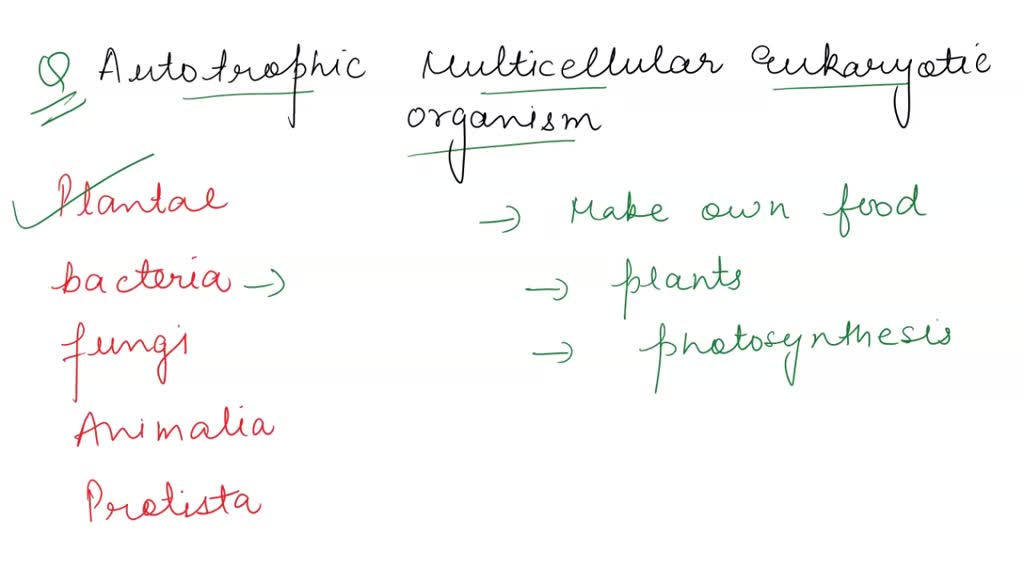 Q Autotrophic Multicellular eukaryotic
organism
Plantae → Make own food
bacteria → → plants
fungi → photosynthesis
Animalia
Protista